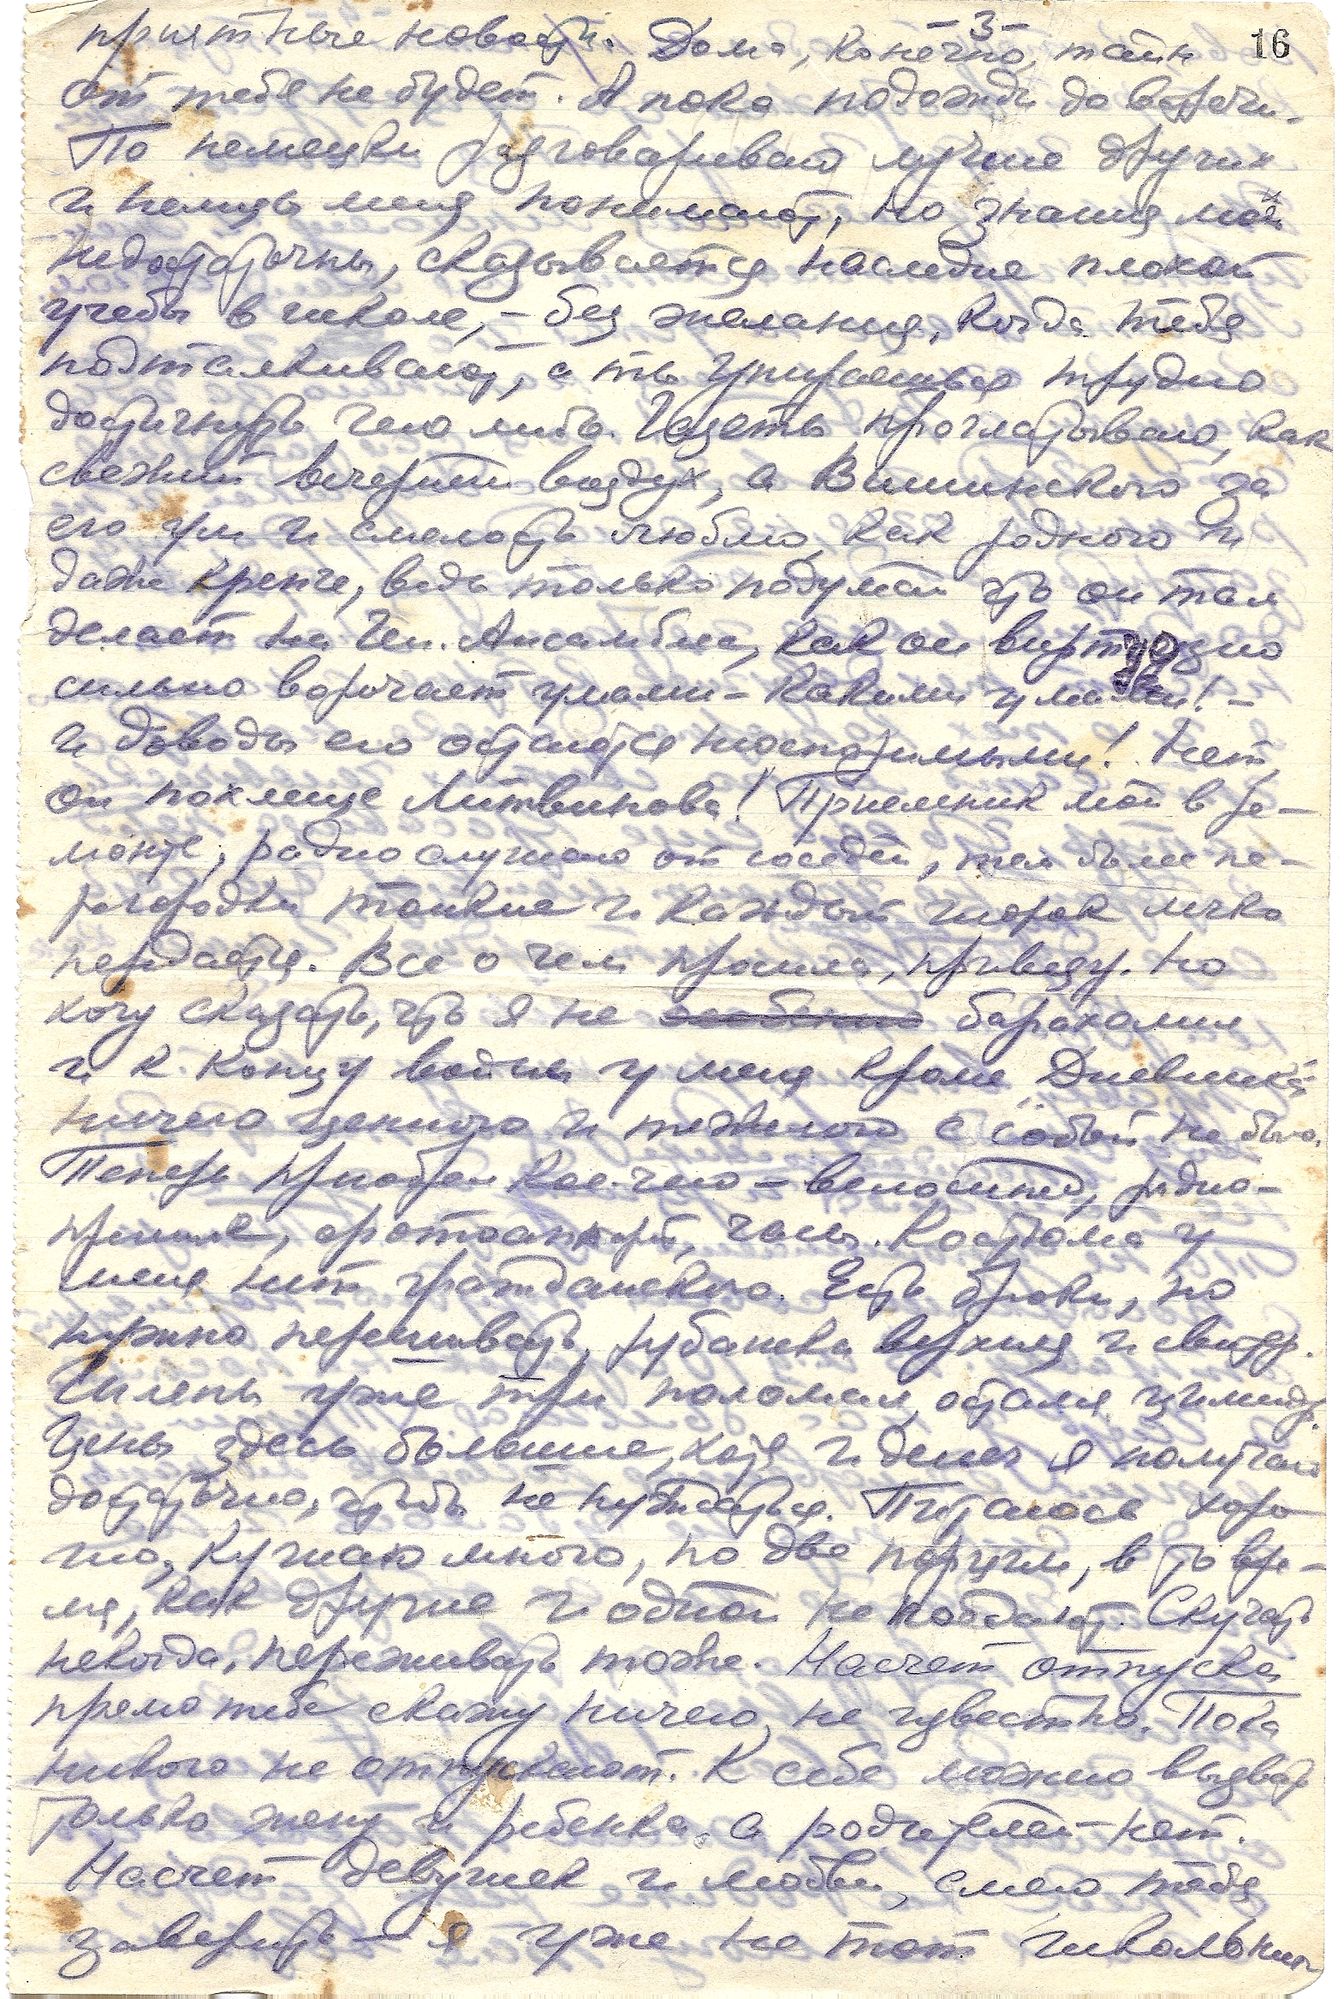 -3-
16
приятные новости. Дома, конечно, тайн
от тебя не будет. А пока подожди до встречи.
По немецки разговариваю лучше других
и немцы меня понимают, но знания мои
недостаточны, сказывается наследие плохой
учебы в школе, – без желания, когда тебя
подталкивают, а ты упираешься трудно
достигнуть чего либо. Газеты проглатываю, как
свежий вечерний воздух, а Вишинского за
его ум и смелость люблю, как родного и
даже крепче, ведь только подумай что он там
делает на Ген. Ансамблее, как он виртуозно
сильно ворочает умами – какими умами! –
и доводы его остаются неоспоримыми! Нет,
он похлеще Литвинова! Приемник мой в ре-
монте, радио слушаю от соседей, там были пе-
регородки тонкие и каждый шорох легко
передается. Все о чем просила, привезу. Но
хочу сказать, что я не особенно барахолил
и к концу войны у меня кроме Дневника
ничего ценного и тяжелого с собой не было.
Теперь приобрел кое-чего – велосипед, радио-
приемник, фотоаппарат, часы. Костюма у
меня нет гражданского. Есть брюки, но
нужно перешивать, рубашка верхняя и свитер.
Шляпы уже три поломал, остался цилиндр.
Цены здесь большие, хотя и денег я получаю
достаточно, чтобы не нуждаться. Питаюсь хоро-
шо, кушаю много, по две порции, в то вре-
мя, как другие и одной не поедают. Скучать
некогда, переживать тоже. Насчет отпуска
прямо тебе скажу ничего не известно. Пока
никого не отпускают. К себе можно вызвать
только жену и ребенка, а родителей – нет.
Насчет девушек и любви, смею тебя
заверить – я уже не тот школьник